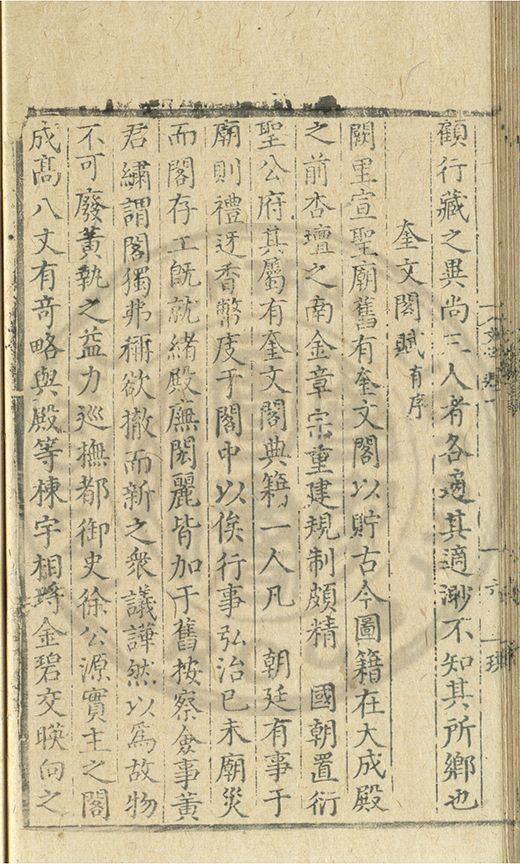 顧行藏之異尚三人者各適其適渺不知其所鄉也
奎文閣賦有序
闕里宣聖廟舊有奎文閣以貯古今圖籍在大成殿
之前杏壇之南金章宗重建規制頗精 國朝置衍
聖公府其屬有奎文閣典籍一人凡 朝廷有事于
廟則禮迓香幣庋于閣中以俟行事弘治己未廟災
而閣存工旣就緒殿廡閎麗皆加于舊按察僉事黃
君繡謂閣獨弗稱欲撤而新之衆議譁然以爲故物
不可廢黃執之益力巡撫都御史徐公源實主之閣
成髙八丈有竒略與殿等棟宇相埒金碧交暎向之